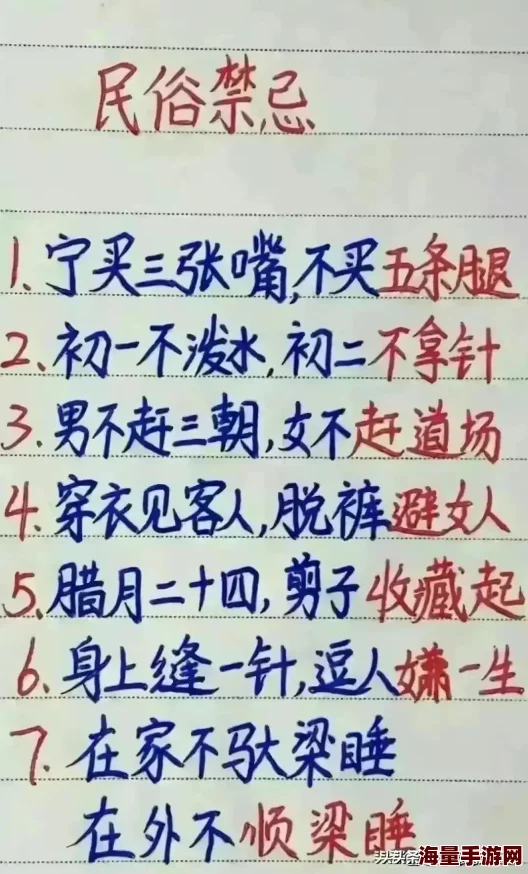 民俗禁忌
1.宁买三张嘴,不买五条腿
2.初一不泼水,初二不拿针
3.男不赶三朝,女不赶道场
4.穿衣见客人,脱裤避女人
5.腊月二十四,剪子收藏起
6.身上缝一针,逗人嫌一生
7.在家不驮梁睡
在外不顺梁睡
海量手游网